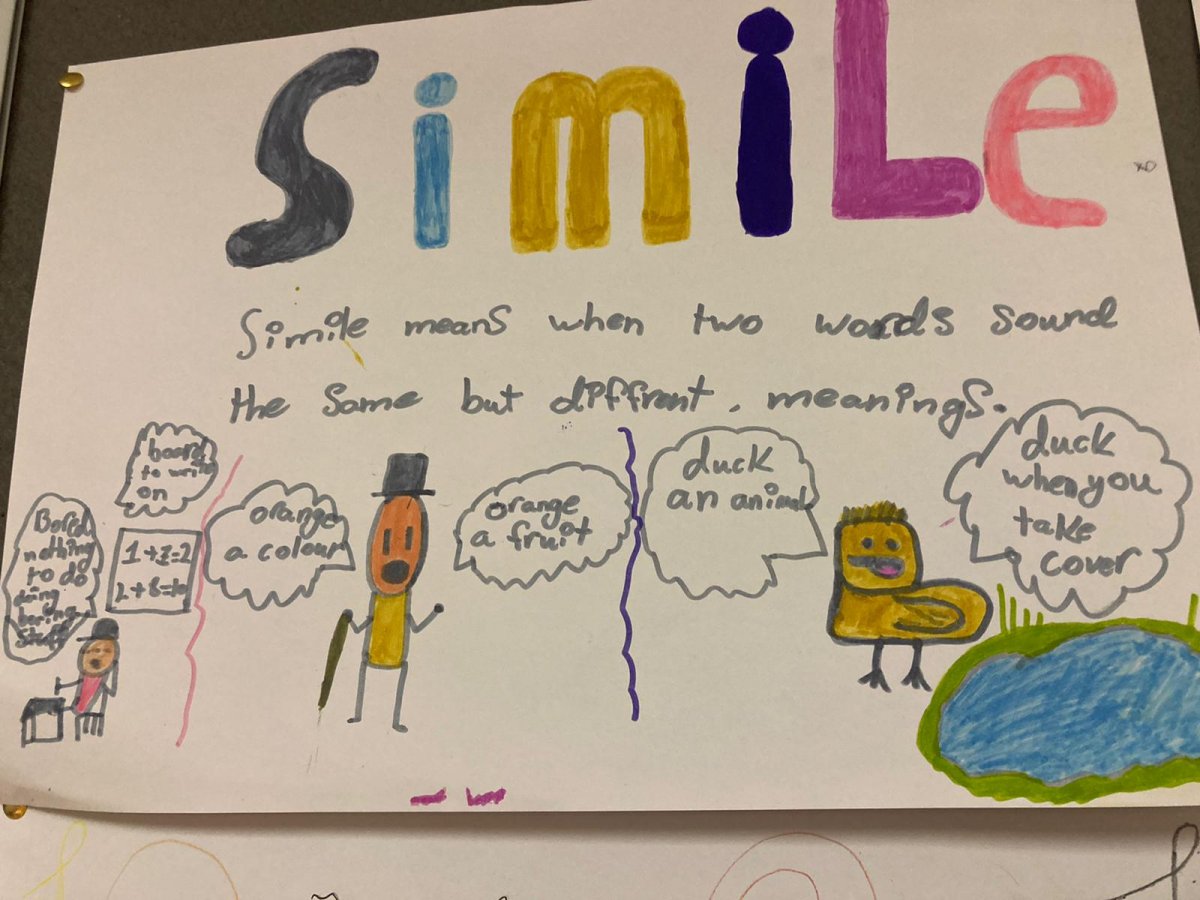 SimiLe
Simile means when two words sound
the same but diffrent. meanings.
Bored
nothing
to do
doing
boring
stuff
board
to write
on
1+1=2
2+8=10
orange
a colour
orange
a fruit
duck
an animal
duck
when you
take
cover